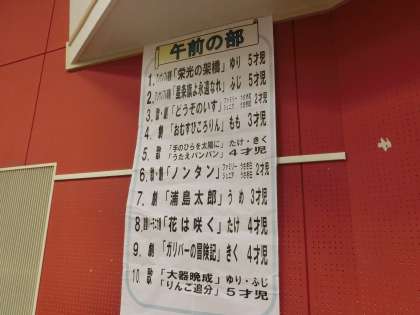 午前の部
1. 「栄光の架橋」ゆり 5才児
2. 「星条旗よ永遠なれ」ふじ 5才児
3. 「どうぞのいす」 2才児
4. 劇「おむすびころりん」もも 3才児
5. 歌「手のひらを太陽に」たけ・きく
「うたえバンバン」4才児
6. 「ノンタン」 2才児
7. 劇「浦島太郎」うめ 3才児
8. 「花は咲く」たけ 4才児
9. 劇「ガリバーの冒険記」きく 4才児
10. 歌「大器晩成」ゆり・ふじ
「りんご追分」5才児